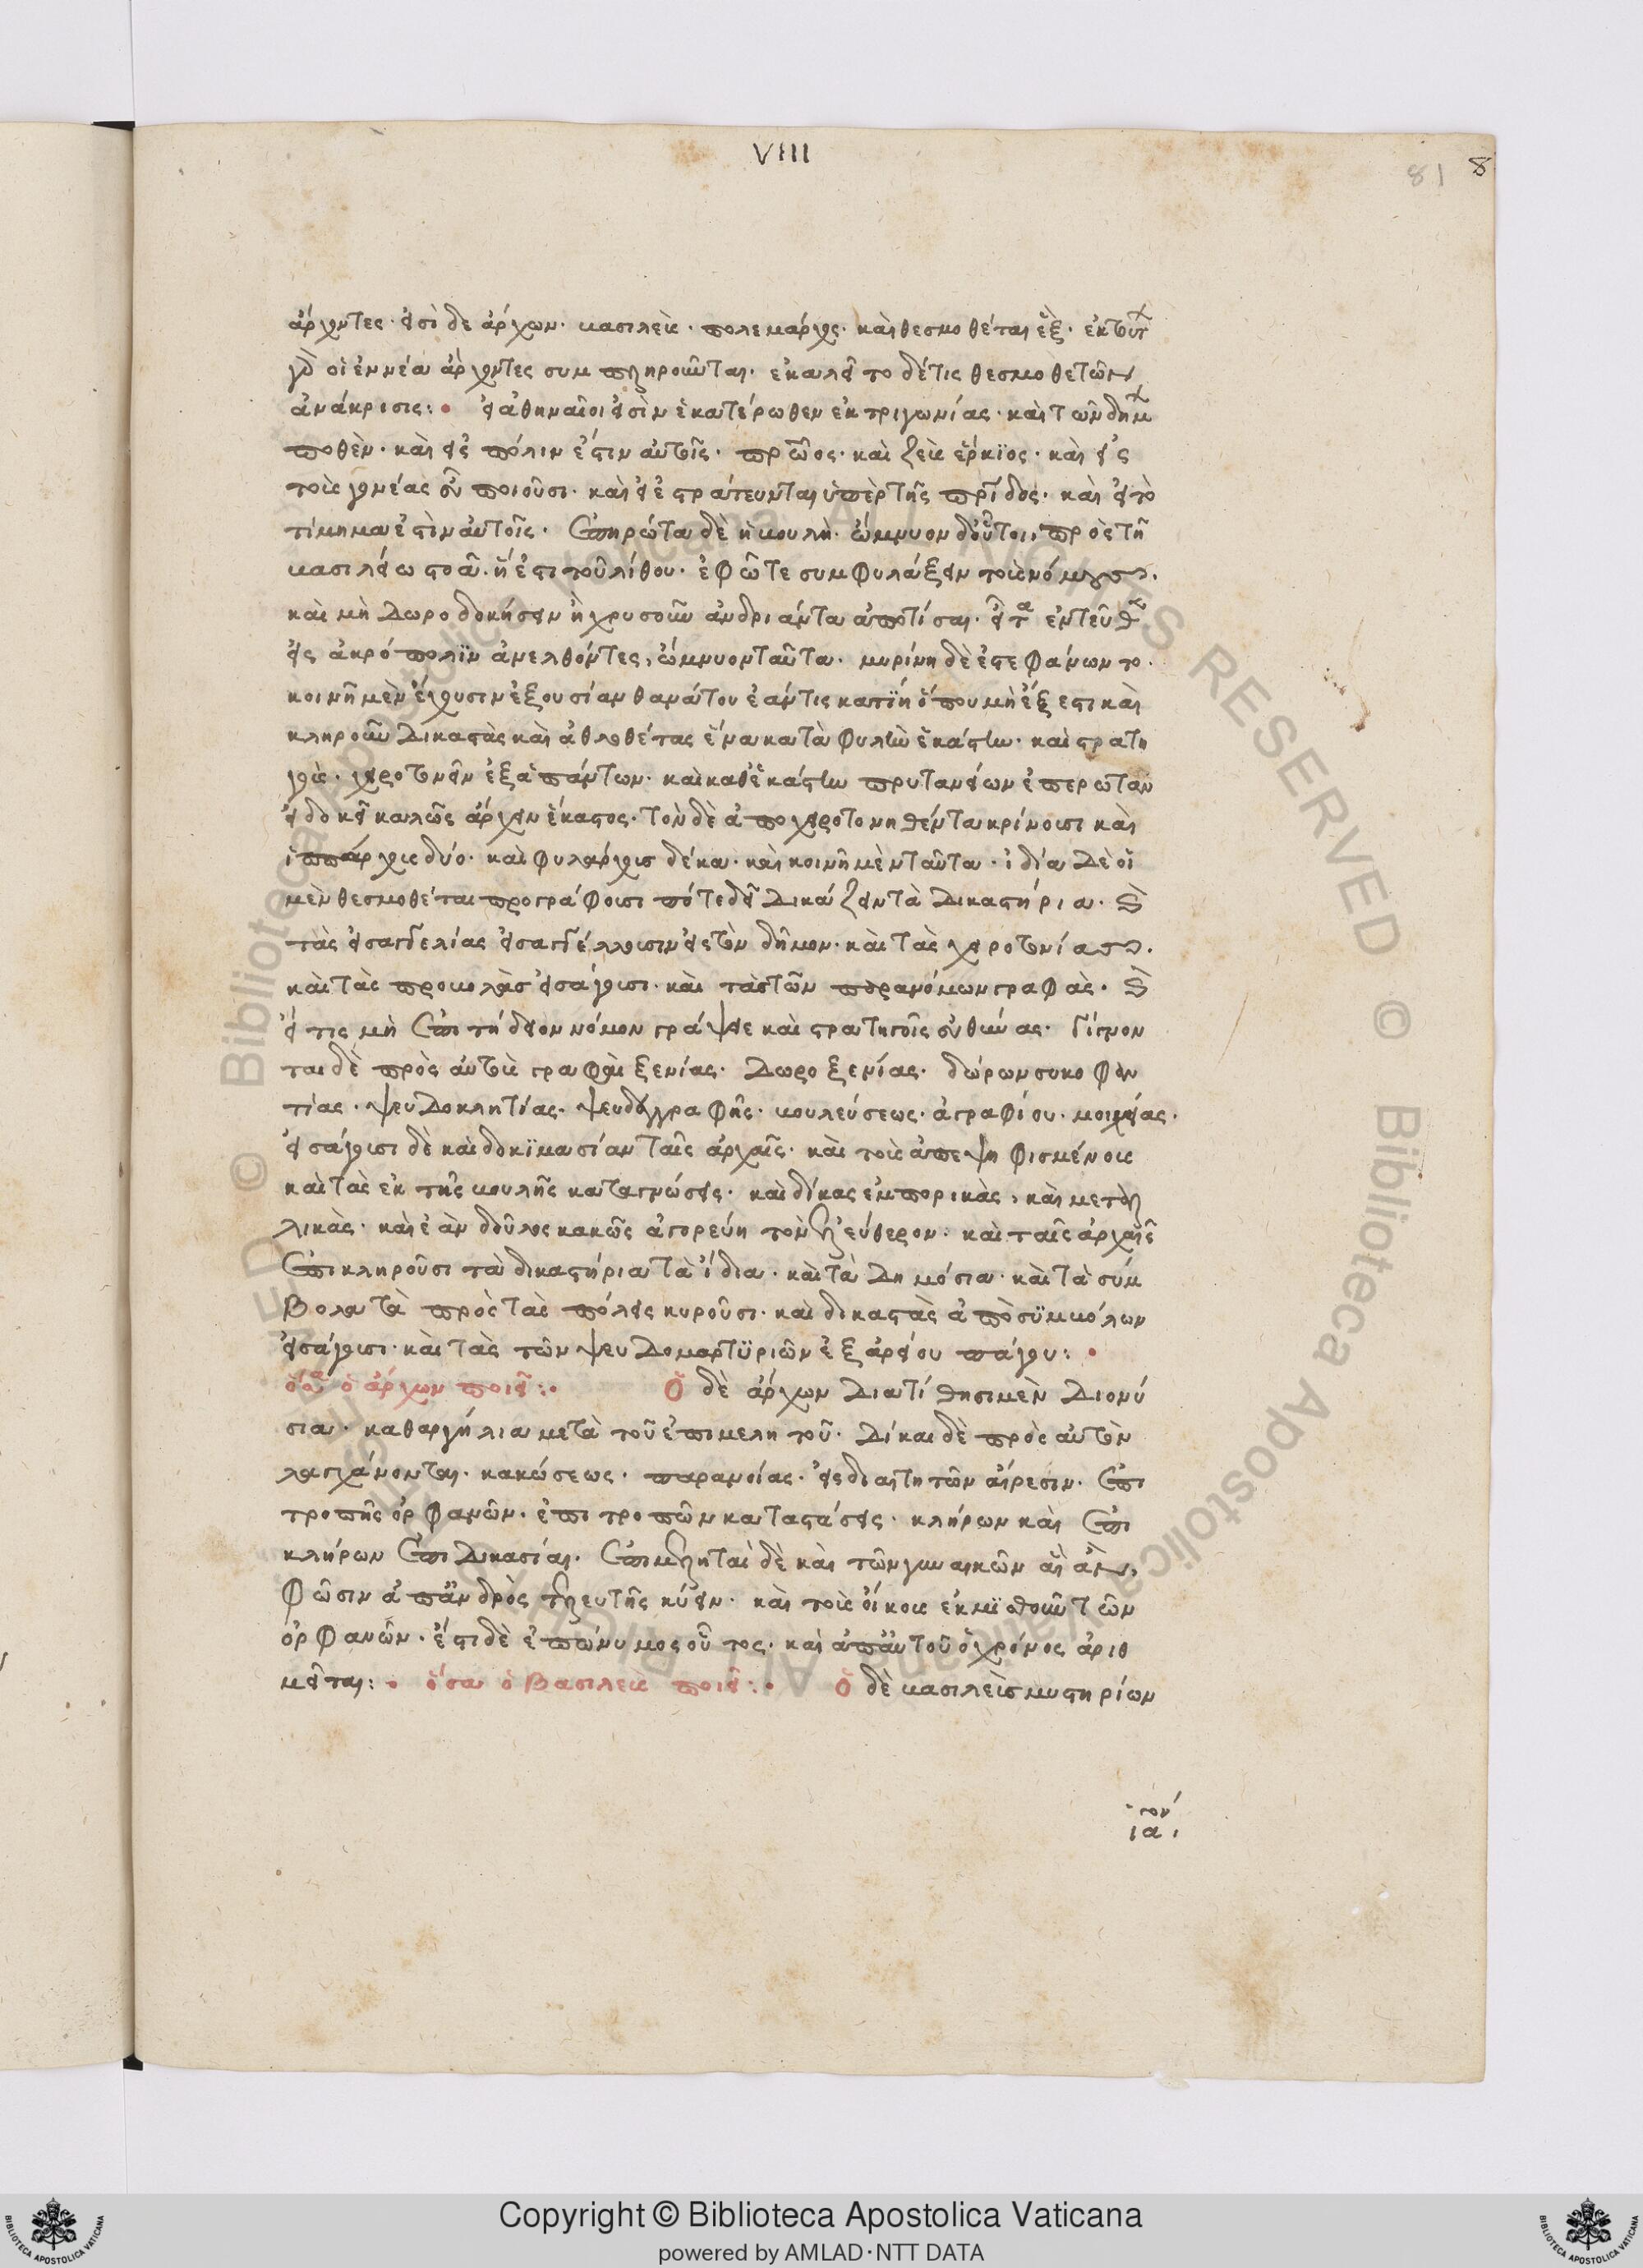 VIIII
81 8
ἄρχοντες· εἰσὶ δὲ ἄρχων· βασιλεὺς· πολεμαρχος· καὶ θεσμοθέται ἓξ· ἐκ τούτων
γὰρ οἱ ἐννέα ἄρχοντες συμπληροῦνται· ἐκαλεῖτο δέ τις θεσμοθετῶν
ἀνάκρισις: • εἰ ἀθηναῖοι εἰσὶν ἑκατέρωθεν ἐκ τριγωνίας· καὶ τῶν δήμων
ποθὲν· καὶ εἰ πόλιν ἐστιν αὐτοῖς· πρῶος· καὶ ζεὺς ἑρκϊος· καὶ εἰς
τοὺς γονέας εὖ ποιοῦσι· καὶ εἰ ἐστράτευνται ὑπὲρ τῆς πατρίδος· καὶ εἰ τὸ
τίμημα ἐστὶν αὐτοῖς· ἐπηρώτα δὲ ἡ βουλὴ· ὤμνυον δ' οὗτοι, πρὸς τῆ
βασιλείω στοᾶ· ἢ ἐπι τοῦ λίθου· ἐφ' ὧτε συμφυλάξειν τοὺς νόμους·
καὶ μὴ δωροδοκήσειν ἢ χρυσοῦν ἀνδριάντα ἀποτίσαι· εἶτα ἐντεῦθεν
εἰς ἀκρόπολϊν ἀνελθόντες, ὤμνυον ταῦτα· μυρίνη δὲ ἐστεφάνωντο·
κοινῆ μὲν ἔχουσιν ἐξουσίαν θανάτου ἐάν τις κατίη ὅπου μὴ ἔξεστι καὶ
κληροῦν δικαστὰς καὶ ἀθλοθέτας ἕνα κατὰ φυλὴν ἑκάστην· καὶ στρατη
γοὺς· χειροτονεῖν ἐξ ἁπάντων· καὶ καθ' ἑκάστην πρυτανείων ἐπερωτᾶν
εἰ δοκεῖ καλῶς ἄρχειν ἕκαστος· τὸν δὲ ἀποχειροτονηθέντα κρίνουσι καὶ
ἱππάρχους δύο· καὶ φυλάρχους δέκα· καὶ κοινῆ μὲν ταῦτα· ἰδία δὲ οἱ
μὲν θεσμοθέται προγράφουσι πότε δεῖ δικάζειν τὰ δικαστήρια· καὶ
τὰς εἰσαγγελίας εἰσαγγέλλουσιν εἰς τὸν δῆμον· καὶ τὰς χειροτονίας·
καὶ τὰς προβολὰς εἰσάγουσι· καὶ τὰς τῶν παρανόμων γραφὰς· καὶ
εἴ τις μὴ ἐπιτήδειον νόμον γράψειε καὶ στρατηγοῖς εὐθύνας· Γίγνον
ται δὲ πρὸς αὐτοὺς γραφαὶ ξενίας· δωροξενίας· δώρων συκοφαν
τίας· ψευδοκλητίας· ψευδόγραφῆς· βουλεύσεως· ἀγραφίου· μοιχείας·
εἰσάγουσι δὲ καὶ δοκϊμασίαν ταῖς ἀρχαῖς· καὶ τοὺς ἀπεψηφισμένους
καὶ τὰς ἐκ τῆς βουλῆς καταγνώσεις· καὶ δίκας ἐμπορικὰς, καὶ μεταλ
λικὰς· καὶ ἐὰν δοῦλος κακῶς ἀγορεύη τὸν ἐλεύθερον· καὶ ταῖς ἀρχαῖς
ἐπικληροῦσι τὰ δικαστήρια τὰ ἴδια· καὶ τὰ δημόσια· καὶ τὰ σύμ
βολα τὰ πρὸς τὰς πόλεις κυροῦσι· καὶ δικαστὰς ἀπὸ σϋμβόλων
εἰσάγουσι· καὶ τὰς τῶν ψευδομαρτϋριῶν ἐξ ἀρείου πάγου: •
ὅσα ὁ ἄρχων ποιεῖ: • Ὁ δὲ ἄρχων διατίθησι μὲν Διονύ
σια· καθαργήλια μετὰ τοῦ ἐπιμελητοῦ· δίκαι δὲ πρὸς αὐτὸν
λαγχάνονται· κακώσεως· παρανοίας· εἰς διαιτητῶν αἵρεσιν· ἐπι
τροπῆς ὀρφανῶν· ἐπιτροπῶν καταστάσεις· κλήρων καὶ ἐπι
κλήρων ἐπιδικασίαι· ἐπιμελεῖται δὲ καὶ τῶν γυναικῶν αἳ ἂν
φῶσιν ἀπ' ἀνδρὸς τελευτῆς κύειν· καὶ τοὺς οἴκους ἐκμϊσθοῦν τῶν
ὀρφανῶν· ἔστι δὲ ἐπώνυμος οὗτος· καὶ ἀπ' αὐτοῦ ὁ χρόνος ἀριθ
μεῖται: • ὅσα ὁ βασιλεὺς ποιεῖ: • Ὁ δὲ βασιλεὺς μυστηρίων